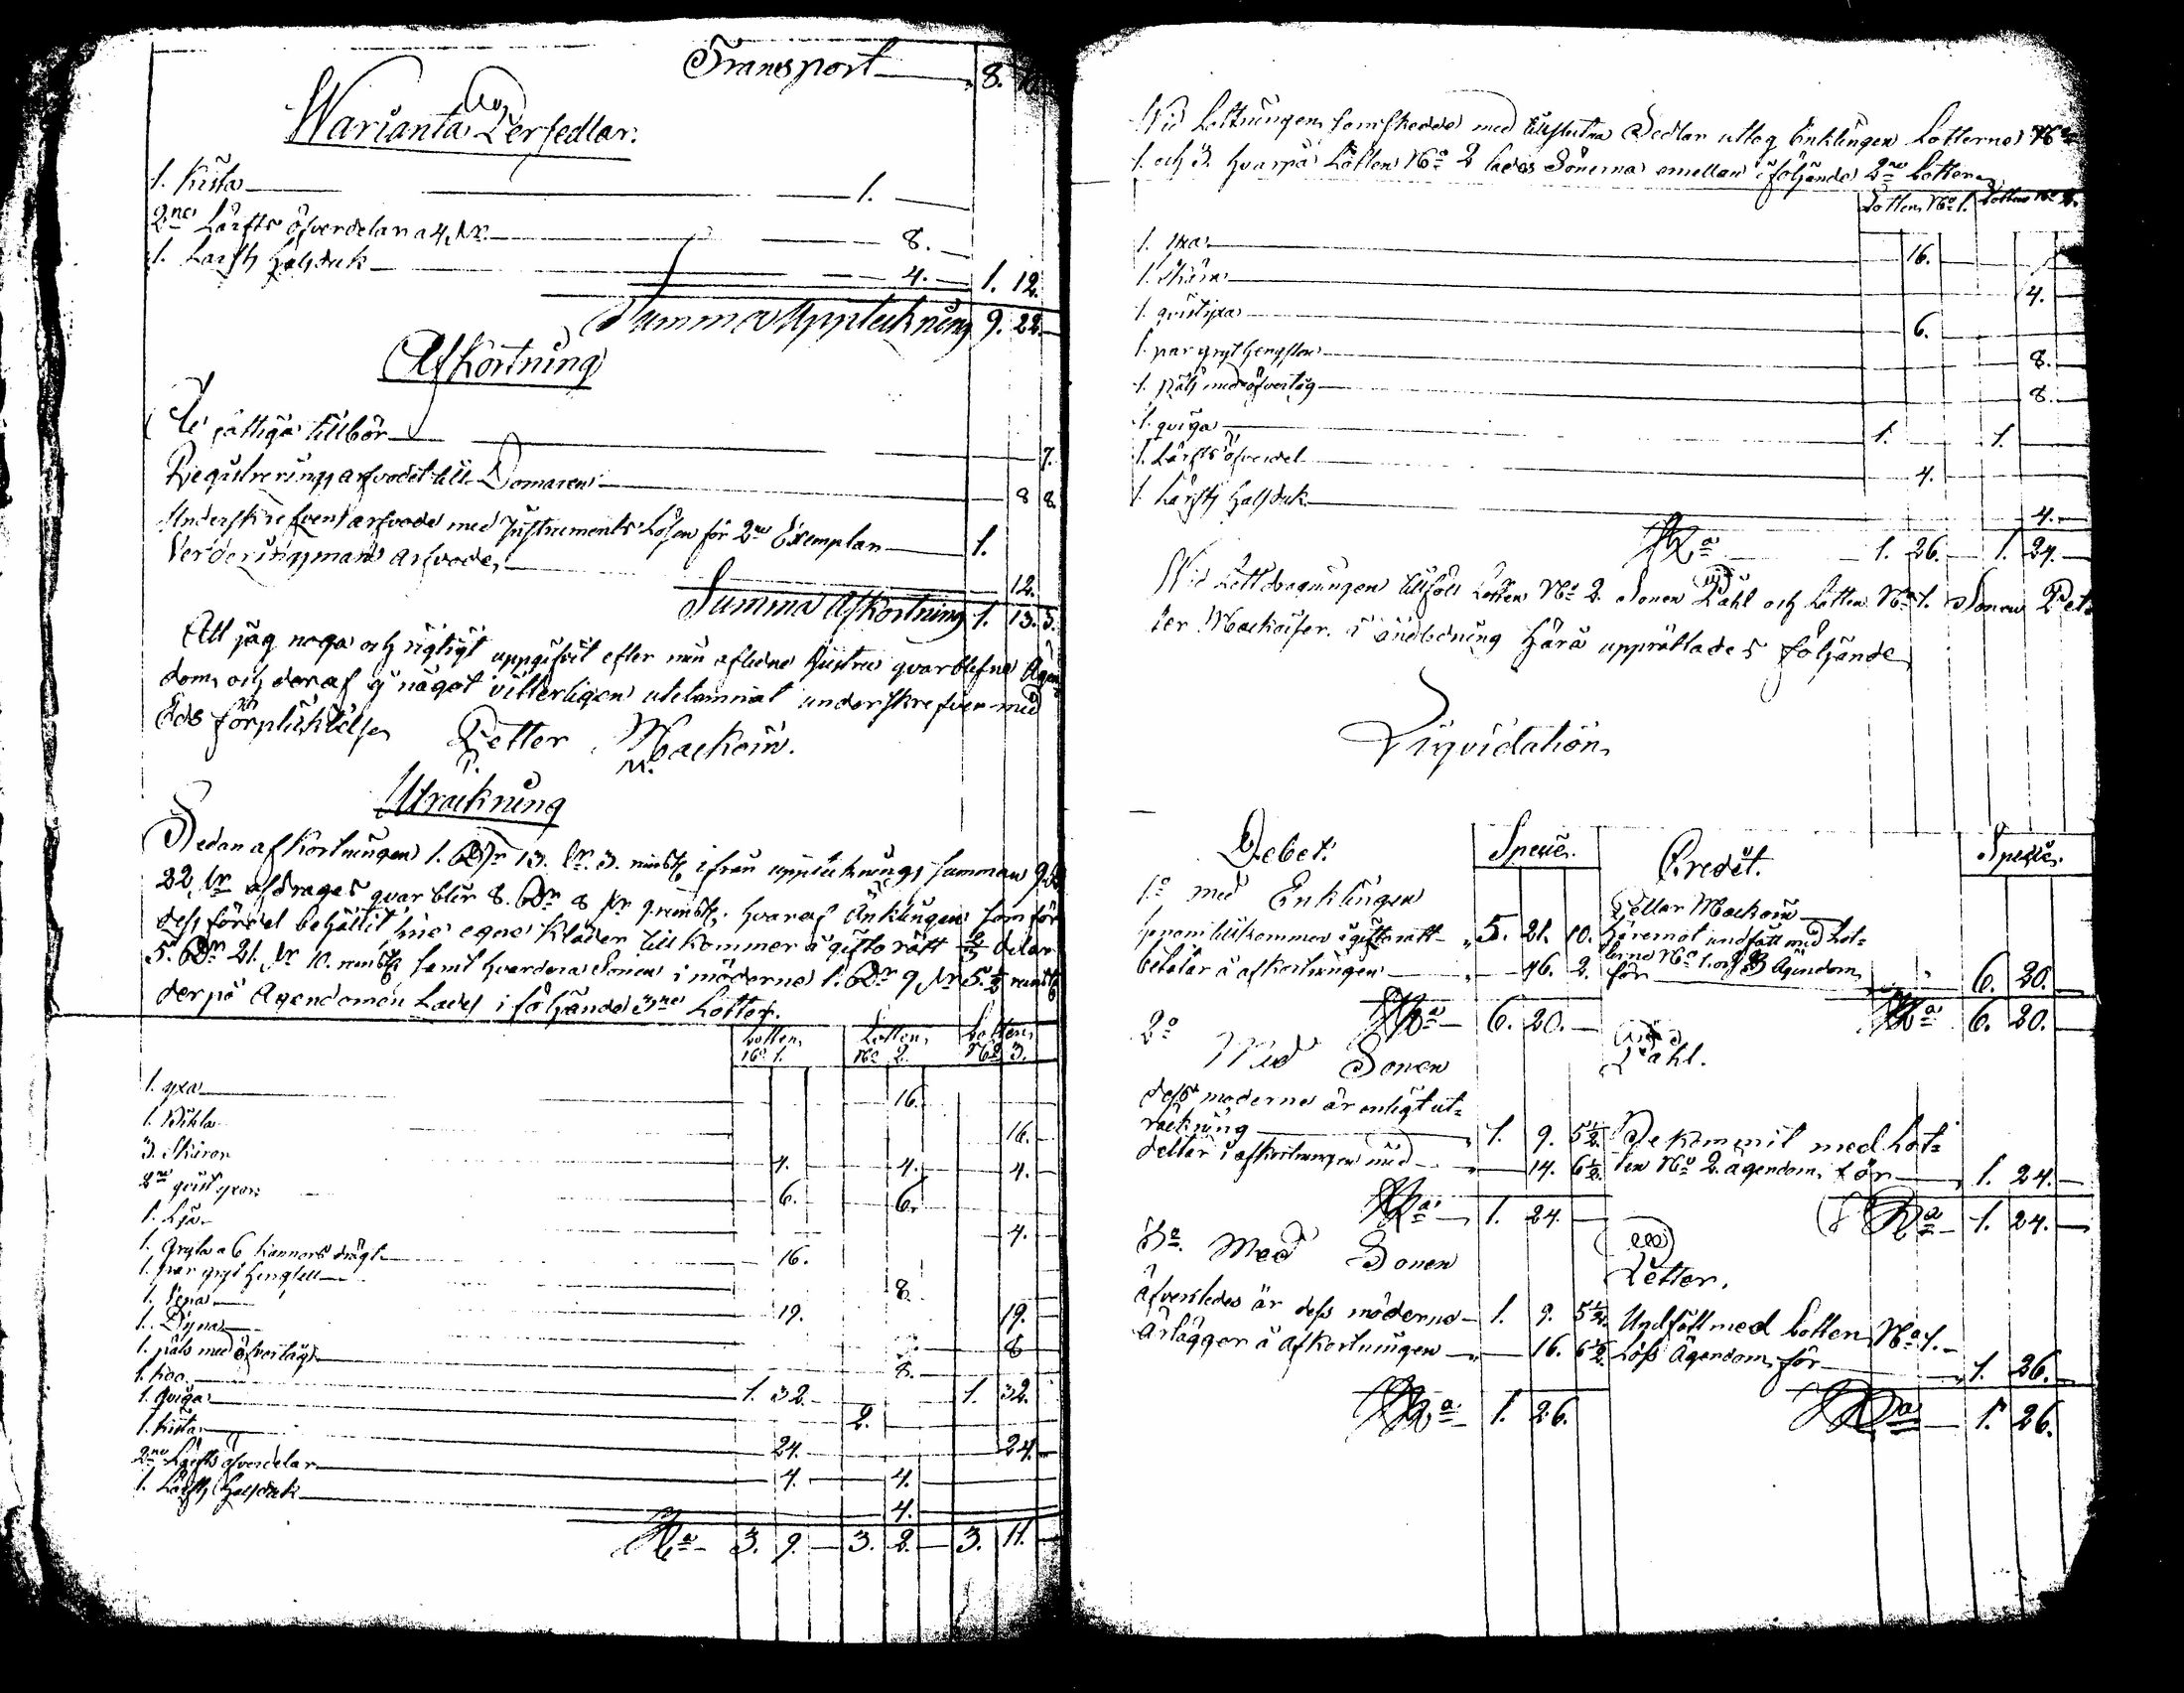 Transport 8. 10.
Warianta Persedlar.
1. Kista 1.
2ne Lärfts öfverdelar a 4 sk. 8.
1. Lärfts Halsduk 4. 1. 12.
Summa Uppteckning 9. 22.
Afkortning
De fattiga tillbör 7.
Registrerings arfvodet till Domaren 8 8.
Underskrefvens arfvode med Instruments Lösen för 2ne Exemplar 1.
Verderingsmans arfvode 12.
Summa Afkortning 1. 13. 3.
Att jag noga och rigtigt uppgifvit efter min aflidne Hustru qvarblefne Ägen
dom, och deraf ej något vitterligen utelemnat underskrefver med
Eds förpliktelse Petter Mackoin.
P. M.
Uträkning
Sedan afkortningen 1. Rdr 13. sk. 3. rundst. ifrån upptecknings summan 9 Rd
22 sk afdrages qvar blir 8. Rdr 8 sk 9 rundst. hvaraf Änklingen som för
dess fördel behållit sine egne Kläder tillkommer i giftorätt 2/3 delar
5. Rdr 21. sk 10. rundst. samt hvardera Sonen i möderne 1. Rdr 9 sk 5. 1/2 rundst
derpå Ägendomen Lades i följande 3ne Lotter.
Lotten No 1. Lotten No 2. Lotten No 3.
1. yxa 16.
1. Bikla 16.
3. Skäror 4. 4. 4.
2ne qvist yxor 6. 6.
1. Lja 4.
1. Gryta a 6 Kannors drägt 16.
1. par gryt Hengslen 8.
1. Vepa 19. 19.
1. Dyna 8
1. päls med öfvertåg 8.
1. Koo 1. 32. 1. 32.
1. Qviga 2.
1. Kista 24. 24.
2ne Lärfts öfverdelar 4. 4.
1. Lärfts Halsduk 4.
Sa 3. 9. 3. 2. 3. 11.
Vid Lottningen som skedde med tillslutna Sedlar uttog Enklingen Lotterne No
1. och 3. hvarpå Lotten No 2 lades Sönerna emellan i följande 2ne Lotter
Lotten No 1. Lotten No 2.
1. yxa 16.
1. Skära 4.
1. qvistyxa 6.
1. par gryt Hengslen 8.
1. päls med öfvertåg 8.
1. qviga 1. 1.
1. Lärfts öfverdel 4.
1. Lärfts Halsduk 4.
Sa 1. 26. 1. 24.
Vid Lottdragningen tillföll Lotten No 2. Sonen Påhl och Lotten No 1. Sonen Pet=
ter Mackoiser. i anledning Hära upprättades följande
Liqvidation
Debet. Specie. Credit. Specie.
1o med Enklingen Petter Mackoin
honom tillkommer i giftorätt 5. 21. 10. Häremot undfått med Lot=
betalar i afkortningen 46. 2. terne No 1. och 3 Ägendom
för 6. 20.
Sa 6. 20. Sa 6. 20.
2o Med Sonen Påhl.
dess möderne är enligt ut=
räkning 1. 9. 5 1/2. Bekommit med Lot=
deltar i afkortningen med 14. 6 1/2. ten No 2. ägendom för 1. 24.
Sa 1. 24. Sa 1. 24.
3o. Med Sonen Petter.
äfverledes är dess möderne 1. 9. 5 1/2. Undfått med Lotten No 1.
Ärlägger i afkortningen 16. 6 1/2. Löss Ägendom för 1. 26.
Sa 1. 26. Sa 1. 26.